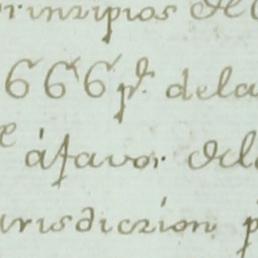 prinzipios de
666 p.^s de la
á favor de
urisdiczion